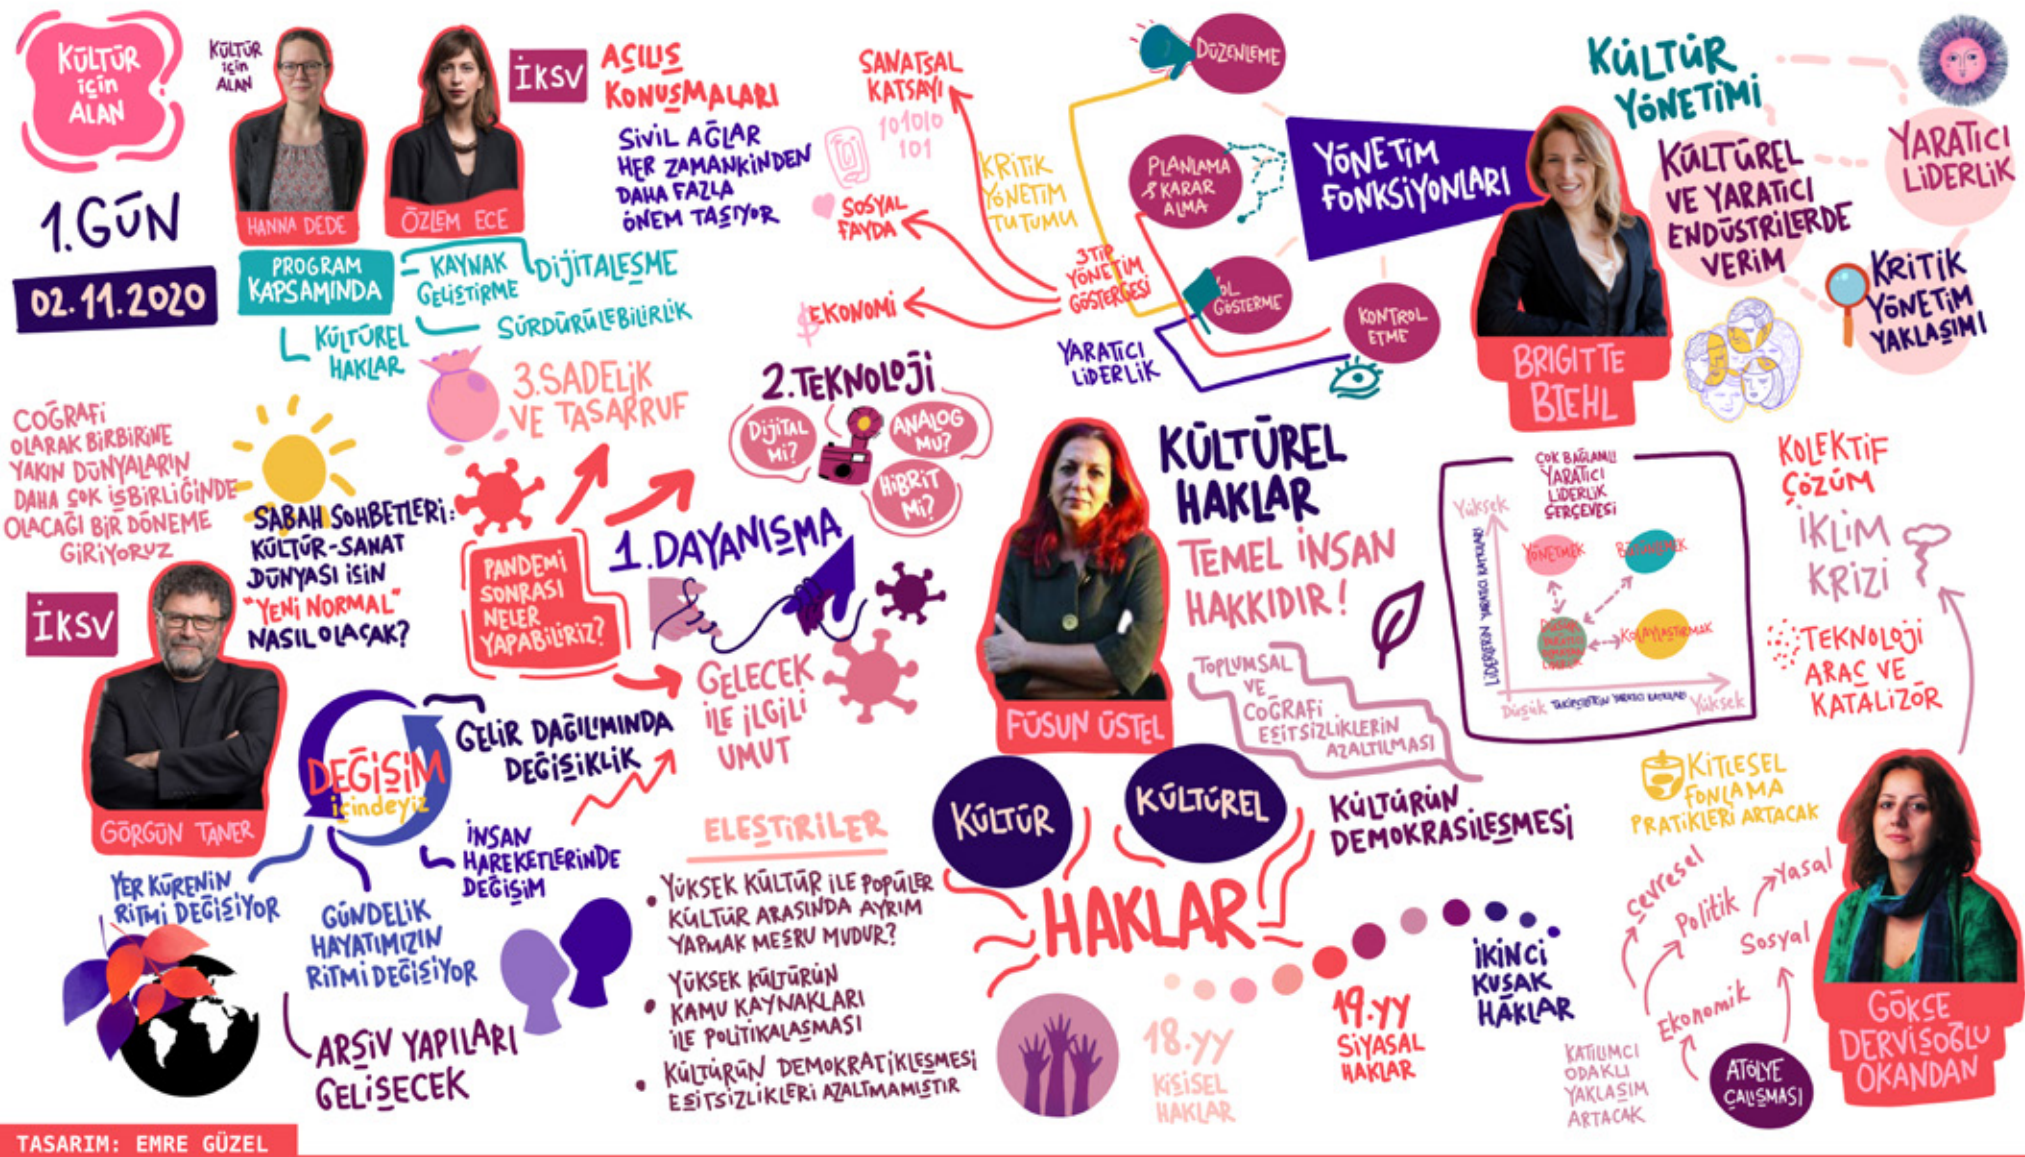 KÜLTÜR
için
ALAN
1.GÜN
02.11.2020
KÜLTÜR
için
ALAN
HANNA DEDE
ÖZLEM ECE
İKSV
AÇILIŞ
KONUŞMALARI
SİVİL AĞLAR
HER ZAMANKİNDEN
DAHA FAZLA
ÖNEM TAŞIYOR
PROGRAM
KAPSAMINDA
KAYNAK
GELİŞTİRME
DİJİTALEŞME
SÜRDÜRÜLEBİLİRLİK
KÜLTÜREL
HAKLAR
SANATSAL
KATSAYI
101010
101
SOSYAL
FAYDA
EKONOMİ
KRİTİK
YÖNETİM
TUTUMU
3 TİP
YÖNETİM
GÖSTERGESİ
YARATICI
LİDERLİK
DÜZENLEME
PLANLAMA
& KARAR
ALMA
GÖSTERME
KONTROL
ETME
YÖNETİM
FONKSİYONLARI
BRIGITTE
BIEHL
KÜLTÜR
YÖNETİMİ
KÜLTÜREL
VE YARATICI
ENDÜSTRİLERDE
VERİM
YARATICI
LİDERLİK
KRİTİK
YÖNETİM
YAKLAŞIMI
COĞRAFİ
OLARAK BİRBİRİNE
YAKIN DÜNYALARIN
DAHA ÇOK İŞBİRLİĞİNDE
OLACAĞI BİR DÖNEME
GİRİYORUZ
İKSV
GÖRGÜN TANER
SABAH SOHBETLERİ:
KÜLTÜR-SANAT
DÜNYASI İÇİN
"YENİ NORMAL"
NASIL OLACAK?
PANDEMİ
SONRASI
NELER
YAPABİLİRİZ?
1.DAYANIŞMA
2.TEKNOLOJİ
DİJİTAL
Mİ?
ANALOG
MU?
HİBRİT
Mİ?
3.SADELİK
VE TASARRUF
GELECEK
İLE İLGİLİ
UMUT
DEĞİŞİM
içindeyiz
GELİR DAĞILIMINDA
DEĞİŞİKLİK
İNSAN
HAREKETLERİNDE
DEĞİŞİM
YER KÜRENİN
RİTMİ DEĞİŞİYOR
GÜNDELİK
HAYATIMIZIN
RİTMİ DEĞİŞİYOR
ARŞİV YAPILARI
GELİŞECEK
FÜSUN ÜSTEL
KÜLTÜREL
HAKLAR
TEMEL İNSAN
HAKKIDIR!
TOPLUMSAL
VE
COĞRAFİ
EŞİTSİZLİKLERİN
AZALTILMASI
KÜLTÜRÜN
DEMOKRASİLEŞMESİ
KÜLTÜR
KÜLTÜREL
HAKLAR
ELEŞTİRİLER
• YÜKSEK KÜLTÜR İLE POPÜLER
KÜLTÜR ARASINDA AYRIM
YAPMAK MEŞRU MUDUR?
• YÜKSEK KÜLTÜRÜN
KAMU KAYNAKLARI
İLE POLİTİKALAŞMASI
• KÜLTÜRÜN DEMOKRATİKLEŞMESİ
EŞİTSİZLİKLERİ AZALTMAMIŞTIR
18.YY
KİŞİSEL
HAKLAR
19.YY
SİYASAL
HAKLAR
İKİNCİ
KUŞAK
HAKLAR
ÇOK BAĞLAMLI
YARATICI
LİDERLİK
ÇERÇEVESİ
Yüksek
LİDERLERİN YARATICI KATKILARI
YÖNETMEK
BÜTÜNLEMEK
KOLAYLAŞTIRMAK
Düşük
TAKİPÇİLERİN YARATICI KATKILARI
Yüksek
KOLEKTİF
ÇÖZÜM
İKLİM
KRİZİ
TEKNOLOJİ
ARAÇ VE
KATALİZÖR
KİTLESEL
FONLAMA
PRATİKLERİ ARTACAK
Çevresel
Politik
Yasal
Sosyal
Ekonomik
KATILIMCI
ODAKLI
YAKLAŞIM
ARTACAK
ATÖLYE
ÇALIŞMASI
GÖKÇE
DERVİŞOĞLU
OKANDAN
TASARIM: EMRE GÜZEL